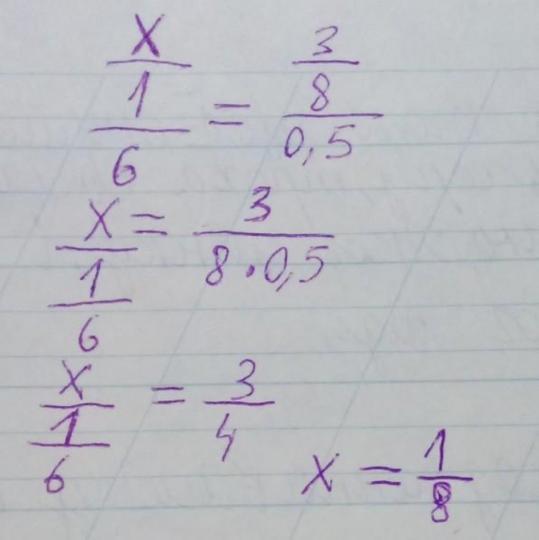 x/(1/6) = (3/8)/0,5
x/(1/6) = 3/(8·0,5)
x/(1/6) = 3/4
x = 1/8